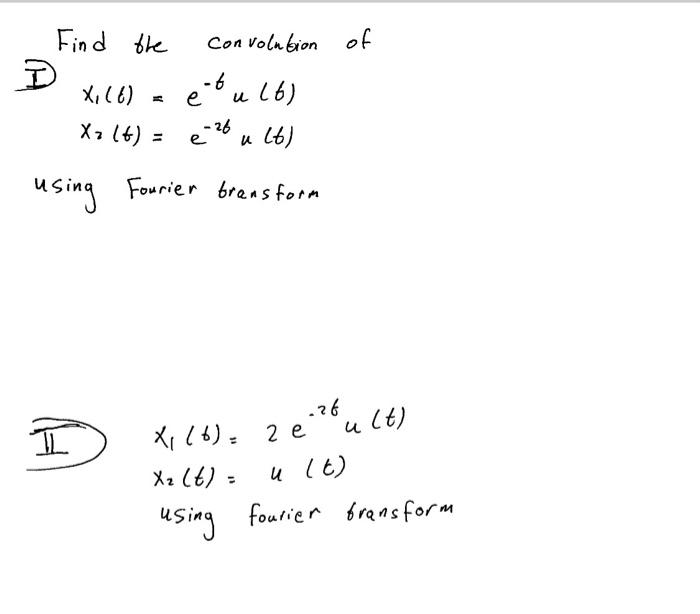 Find the convolution of
I x₁(t) = e⁻ᵗ u(t)
x₂(t) = e⁻²ᵗ u(t)
using Fourier transform
II x₁(t) = 2 e⁻²ᵗ u(t)
x₂(t) = u(t)
using fourier transform